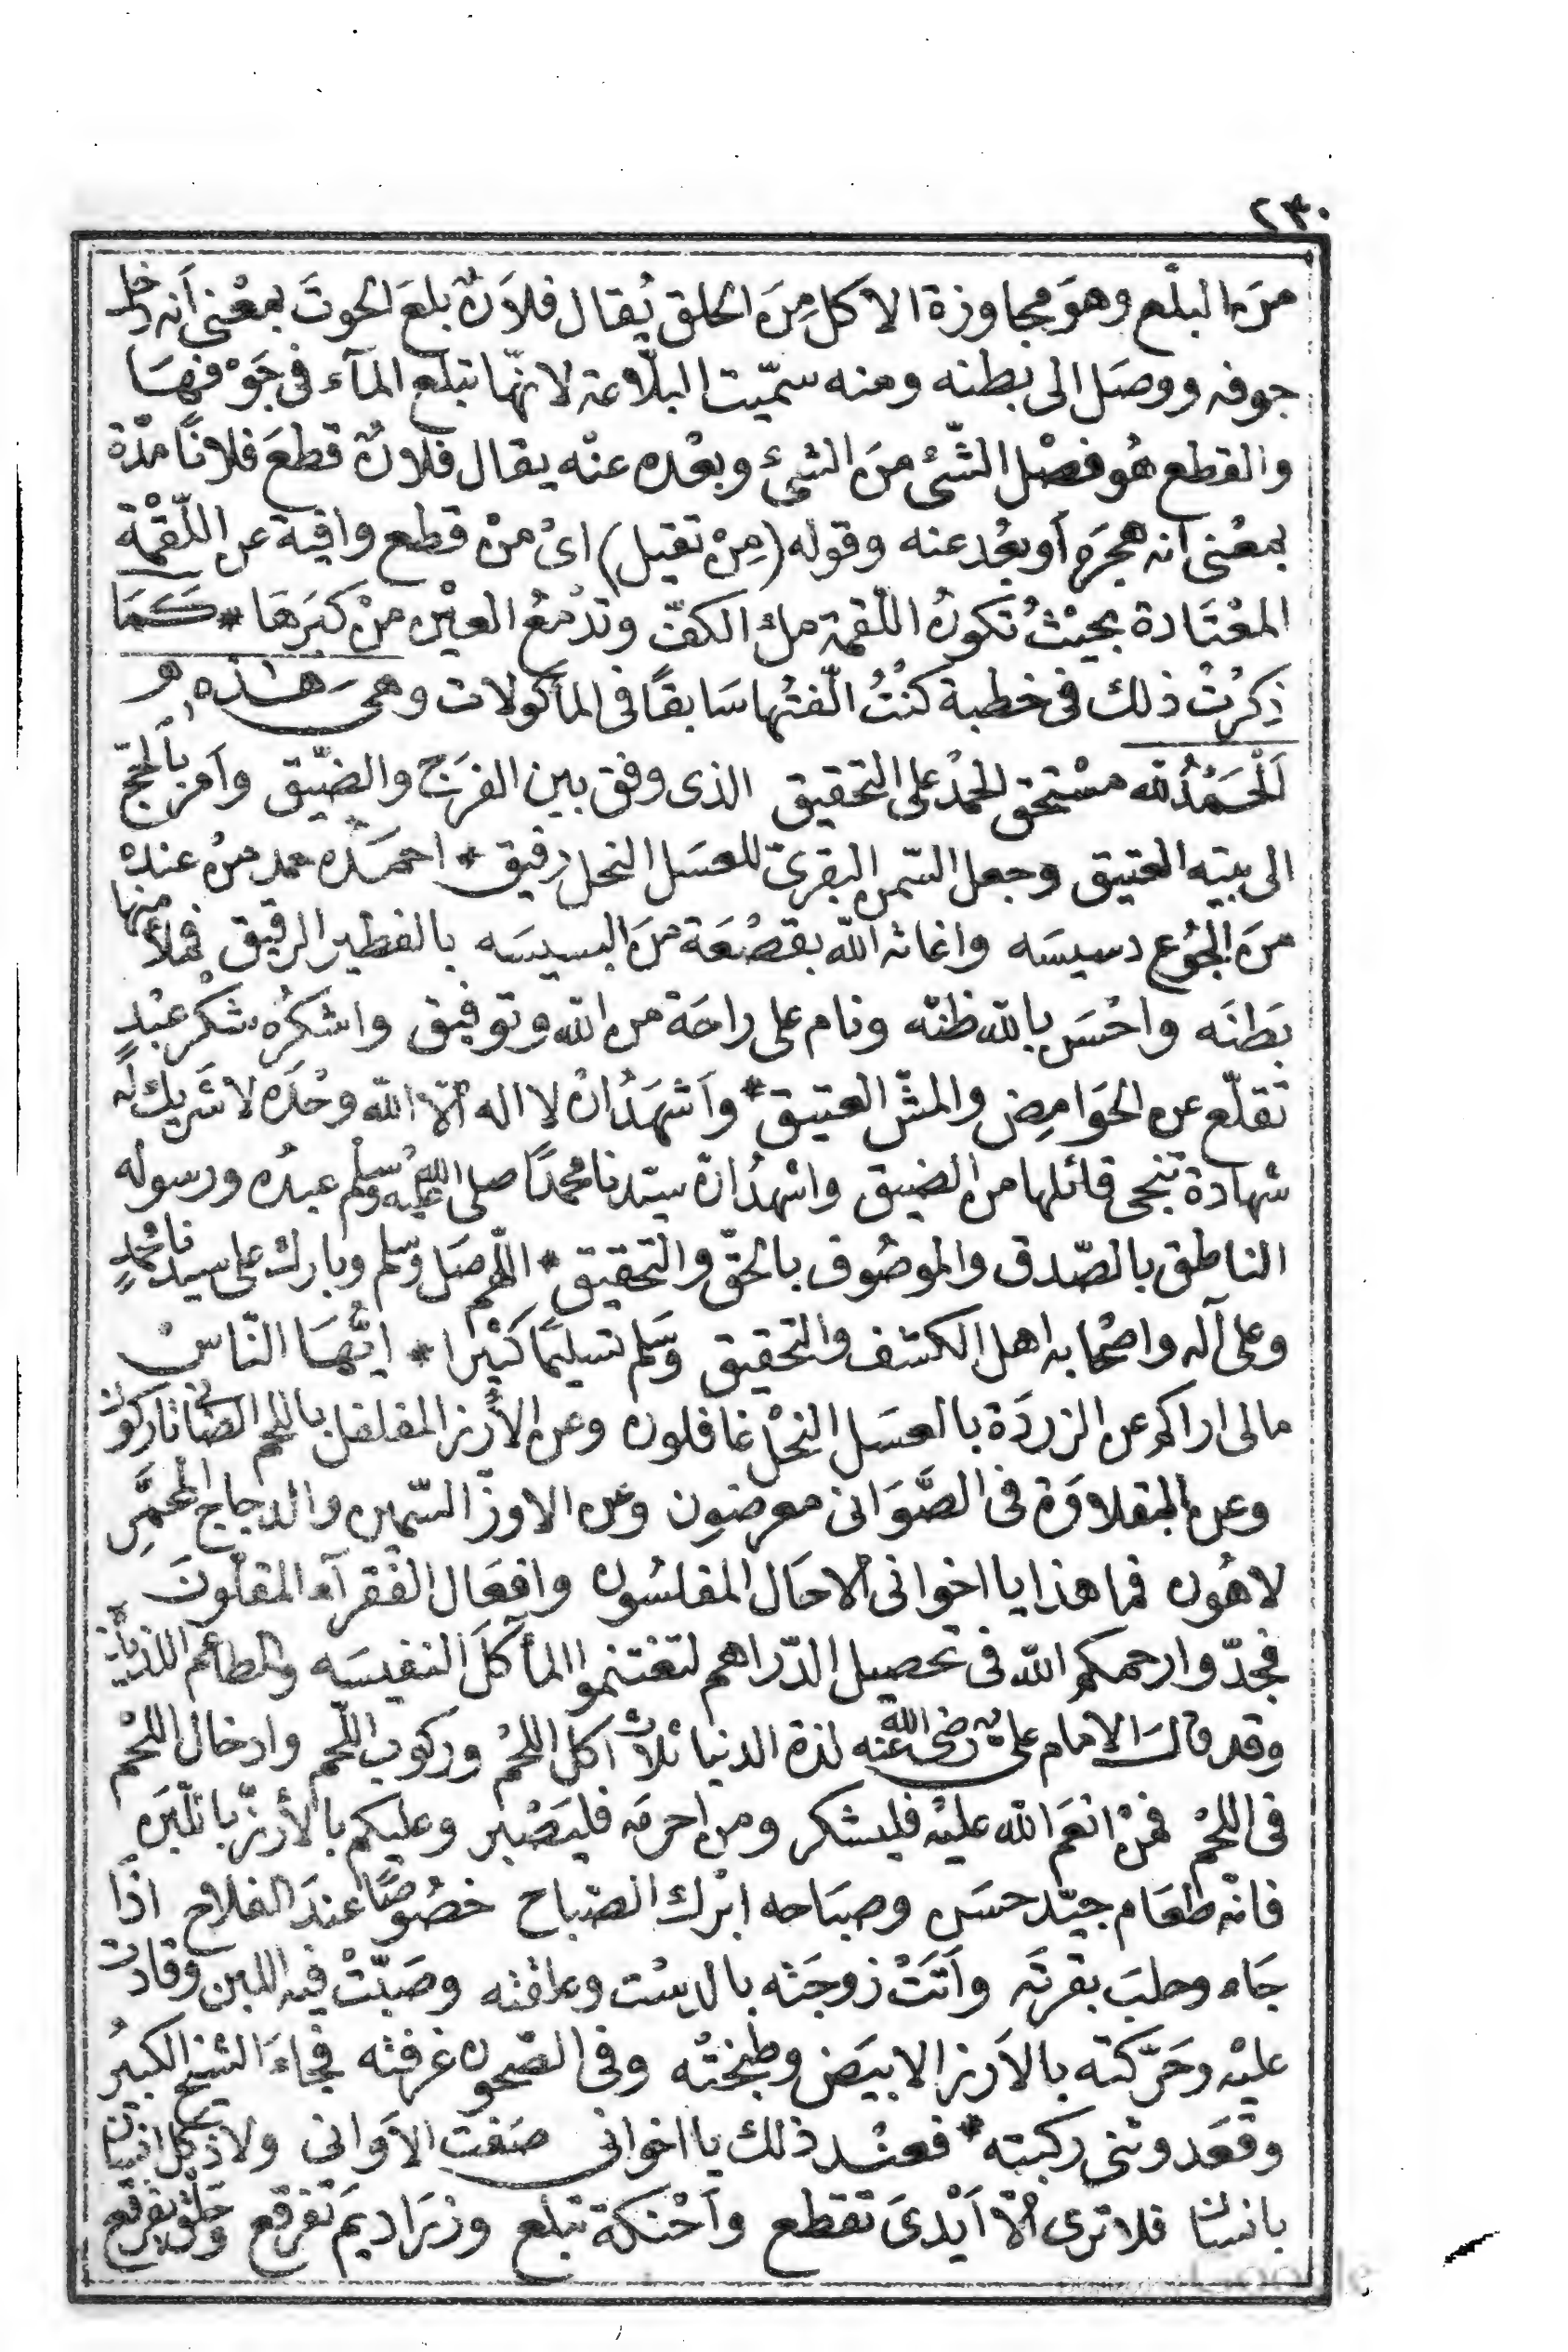 ٢٣٠
منَ البلْع وهوَ مجاوزة الاكل مِنَ الحلق يُقال فلانٌ بلعَ الحوتَ بمعْنى أنه دخل
جوفه ووصَل الى بطنه ومنه سمّيت البلّاعة لانّها تبلع المآء فى جَوْفهَا
والقطع هُو فصْل الشّئ منَ الشئ وبعْده عنْه يقال فلانٌ قطعَ فلانًا مدّة
بمعْنى أنه هجرَه أو بعُد عنه وقوله (مِنْ تقيل) اىْ منْ قطع واقية عن اللّقْمْة
المعْتَادة بحيْثُ تكونُ اللقمة ملء الكفّ وتدْمعُ العيْن منْ كبرَها * كَمَا
ذِكرْتُ ذلك فى خطبة كنْتُ الّفتُها سَابقًا فى المأكولات وهىَ هٰذه و هو
اَلْحَمْدُ لله مسْتحق الحمْد على التحقيق الذى وفق بين الفرَج والضيّق وأمر بالحجّ
الى بيته العتيق وجعل السّمن البقرىّ للعسَل النحل رفيق * احمَدُه حمد منْ عندهْ
منَ الجُوع دسيسَه واغاثه الله بقصْعَة منَ البسيسَه بالفطير الرقيق فملأ منها
بَطنَه واحْسَن بالله ظنّه ونام على راحَة من الله وتوفيق واشكرُه شكْر عبْدٍ
تقلّع عن الحَوامِض والمشّ العتيق * وأشهَدُ انْ لا اله الّا الله وحْدَه لا شَريك لَه
شهادة تنجى قائلها من الضيق واشْهدُ انّ سيّدنا محمدًا صلى الله عليه وسلم عبدُه ورسوله
الناطق بالصّدق والموصُوف بالحقّ والتحقيق * اللّهم صَل وسلم وبارك على سيدنا محمْدٍ
وعلى آله واصْحابه اهل الكشف والتحقيق وسَلم تسليمًا كَثيْرا * ايُّهَا النّاسْ
مالى اراكم عن الزردَة بالعسَل النحْل غافلون وعن الأرْز المفلفل باللحم الضانى تاركون
وعن البقلاوَة فى الصَّوَانى معرضون وعن الاوزّ السّمين والدجاج المُحَمَّرِ
لاهُون فما هذا يا اخوانى الا حَال المفلسُون وافعَال الفُقرآء المقلّونَ
فجدّوا رحمكم الله فى تحصيل الدّراهم لتغتنموا المأكلَ النفيسَه والمطاعم اللذيذة
وقد قالَ الامام على رضى الله عنه لذة الدنيا ثلاثْ أكل اللحْم وركوب اللّحم وادخال اللحْم
فى اللحْم فمنْ انعَم الله عليْه فليشكر ومن احرمه فليَصْبر وعليكم بالأرزّ باللّبَنِ
فانّه طعَام جيّد حسَن وصبَاحه ابْرك الصّباح خصُوصًا عندَ الفلاح اذَا
جَاء وحلبَ بقرتَه وأتَتْ زوجَته بالدسْت وعلقته وصَبّتْ فيه اللبن وقادَتْ
عليْه وحَرّكته بالأرز الابيَض وطبخَتْه وفى الصّحون غرفَتْه فجاءَ الشيْخ الكبيْرُ
وقعَد وثنى ركبته * فعنْد ذلك يا اخوانى صَفت الأوانى ولاذ كل انسان
بانسان فلا ترى الّا أيْدىَ تقطع وأحْنكة تبلع وزرَاديم تفرقع وحلوق تقرقع